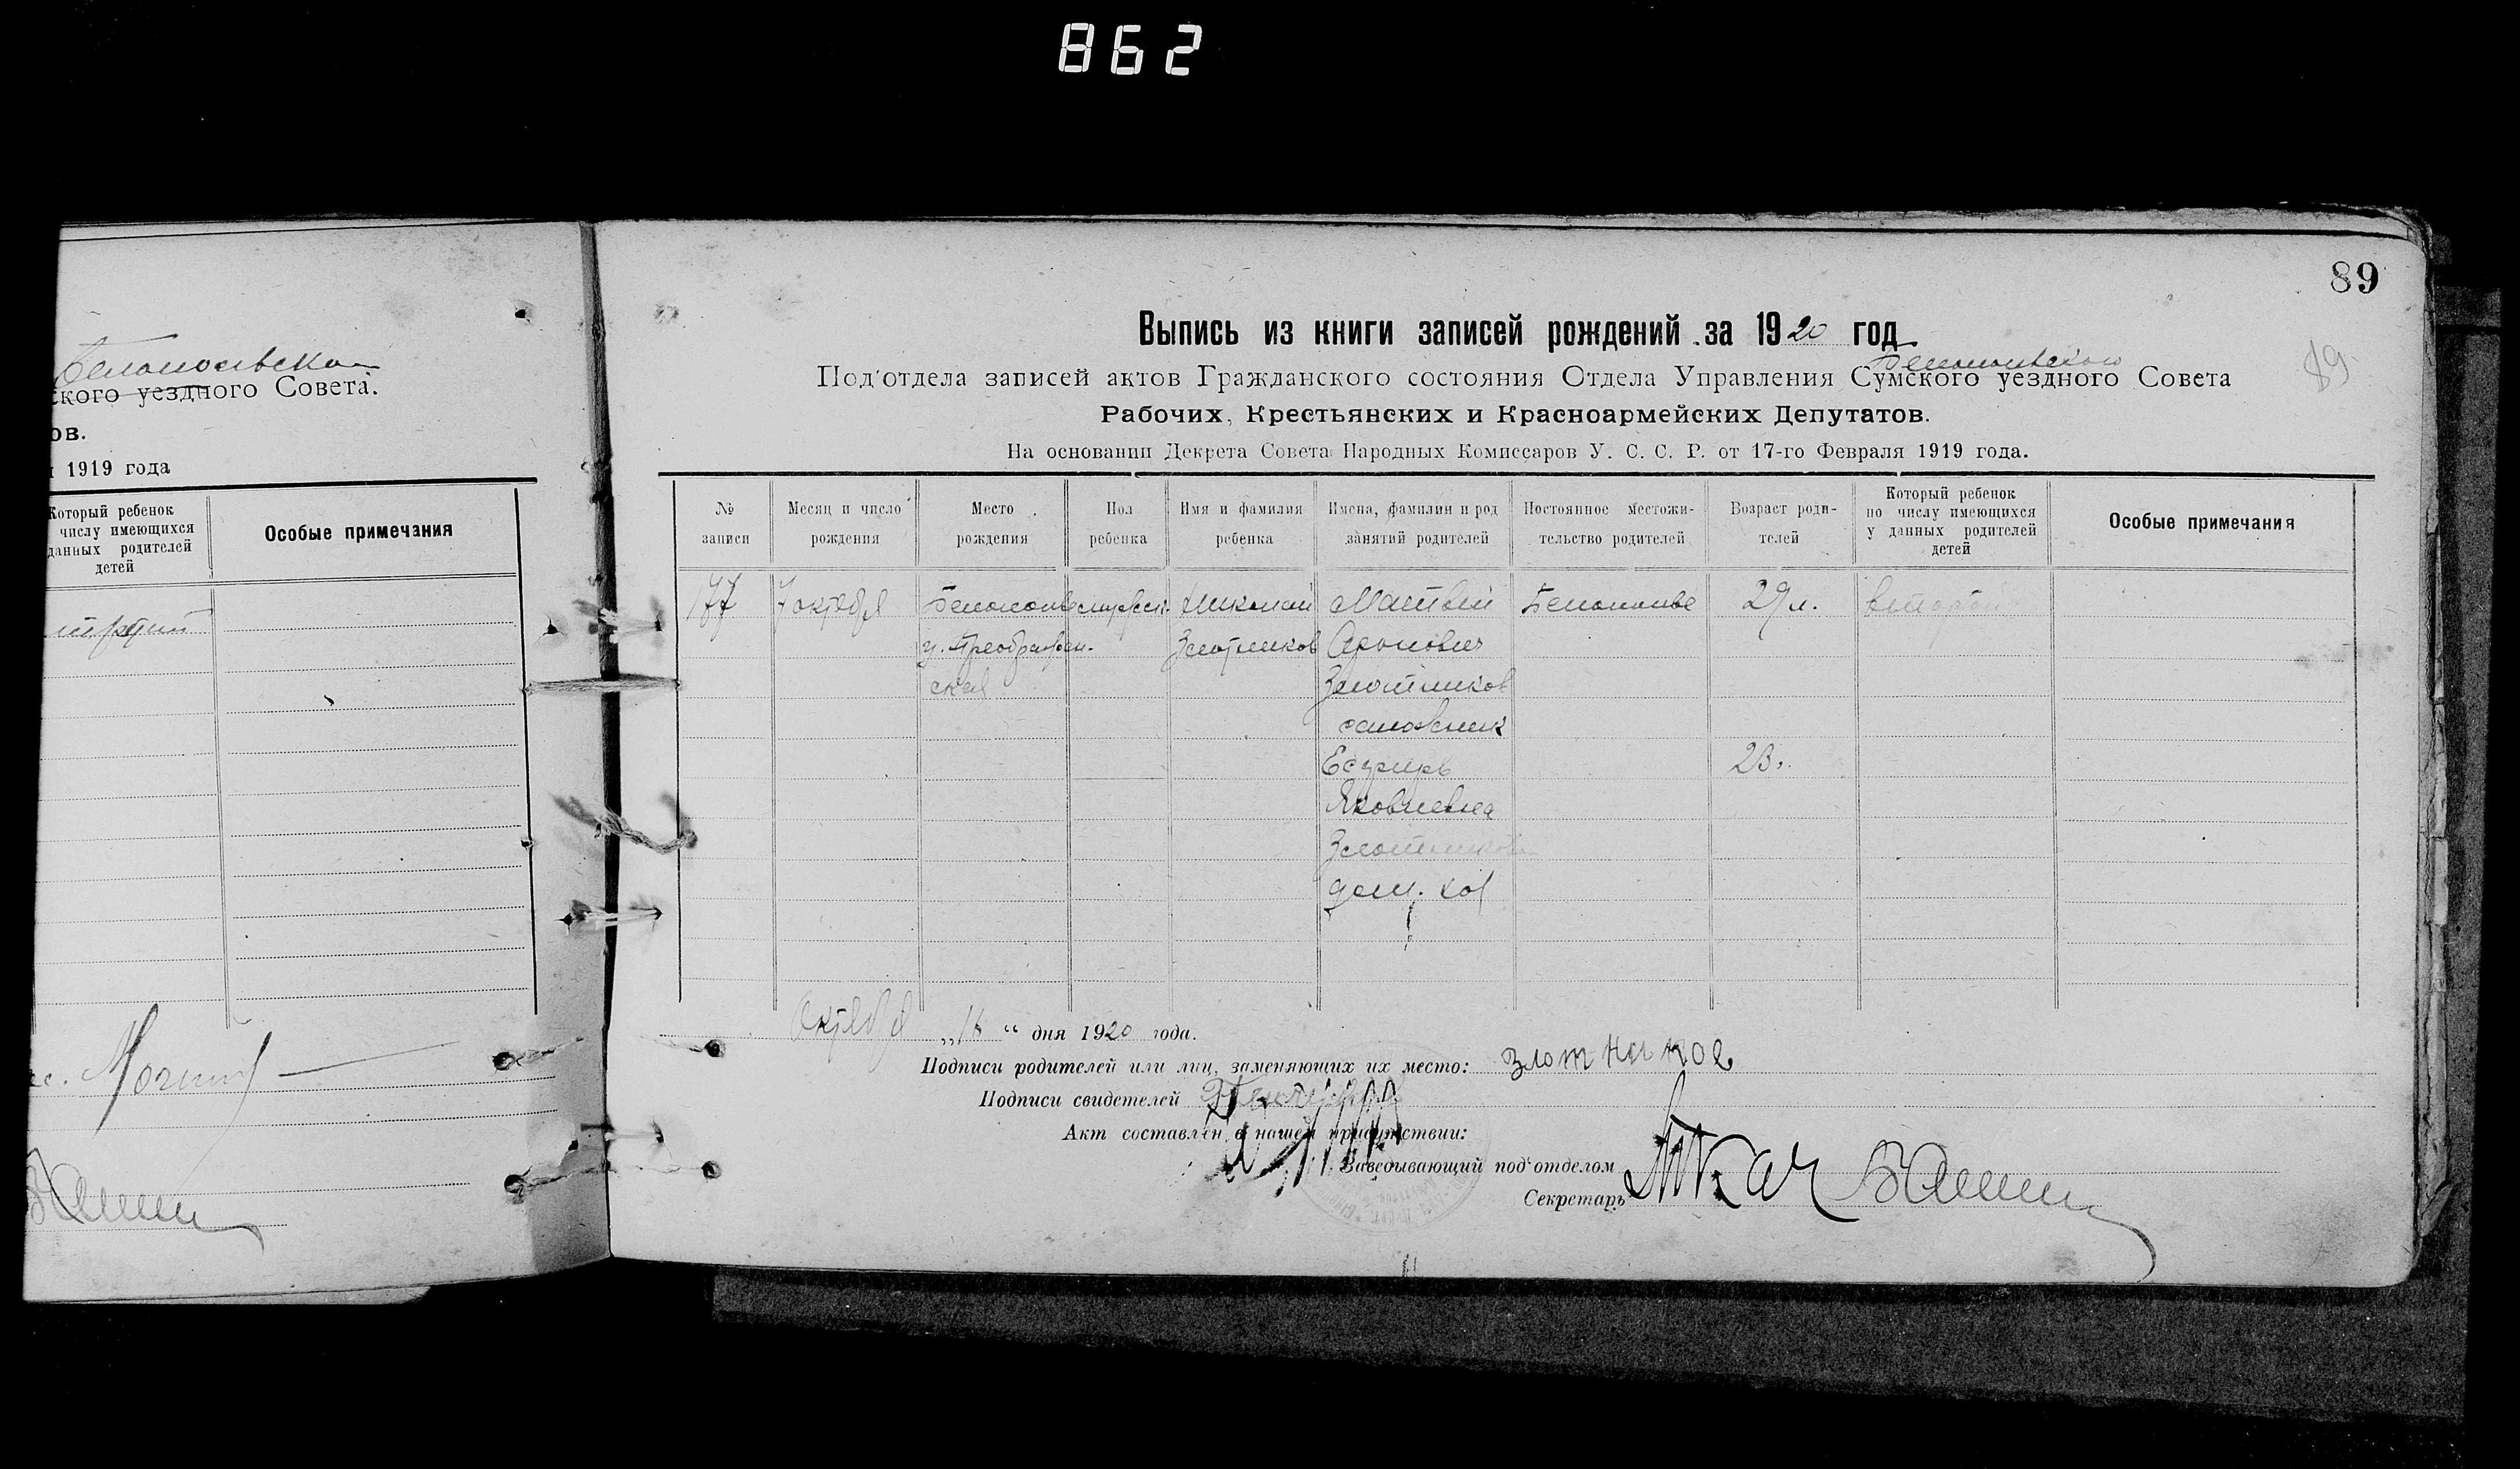 862
Белопольско
ского уездного Совета.
ов.
1919 года
Который ребенок
числу имеющихся
данных родителей
детей
Особые примечания
89
Выпись из книги записей рождений за 1920 год
Белопольского
Под'отдела записей актов Гражданского состояния Отдела Управления Сумского уездного Совета
89
Рабочих, Крестьянских и Красноармейских Депутатов.
На основании Декрета Совета Народных Комиссаров У. С. С. Р. от 17-го Февраля 1919 года.
№ записи
Месяц и число рождения
Место рождения
Пол ребенка
Имя и фамилия ребенка
Имена, фамилии и род занятий родителей
Постоянное местожительство родителей
Возраст родителей
Который ребенок по числу имеющихся у данных родителей детей
Особые примечания
177 7 октября Белополье мужск. Николай Матвей Белополье 29 л. второй
у. Преображен- Злотников Аронович
ская Злотников
сапожник
Есфирь 23.
Яковлевна
Злотникова
дом. хоз
Октября „18“ дня 1920 года.
Подписи родителей или лиц, заменяющих их место: злотников
Подписи свидетелей
Акт составлен в нашем присутствии:
Заведывающий под'отделом Ткач
Секретарь